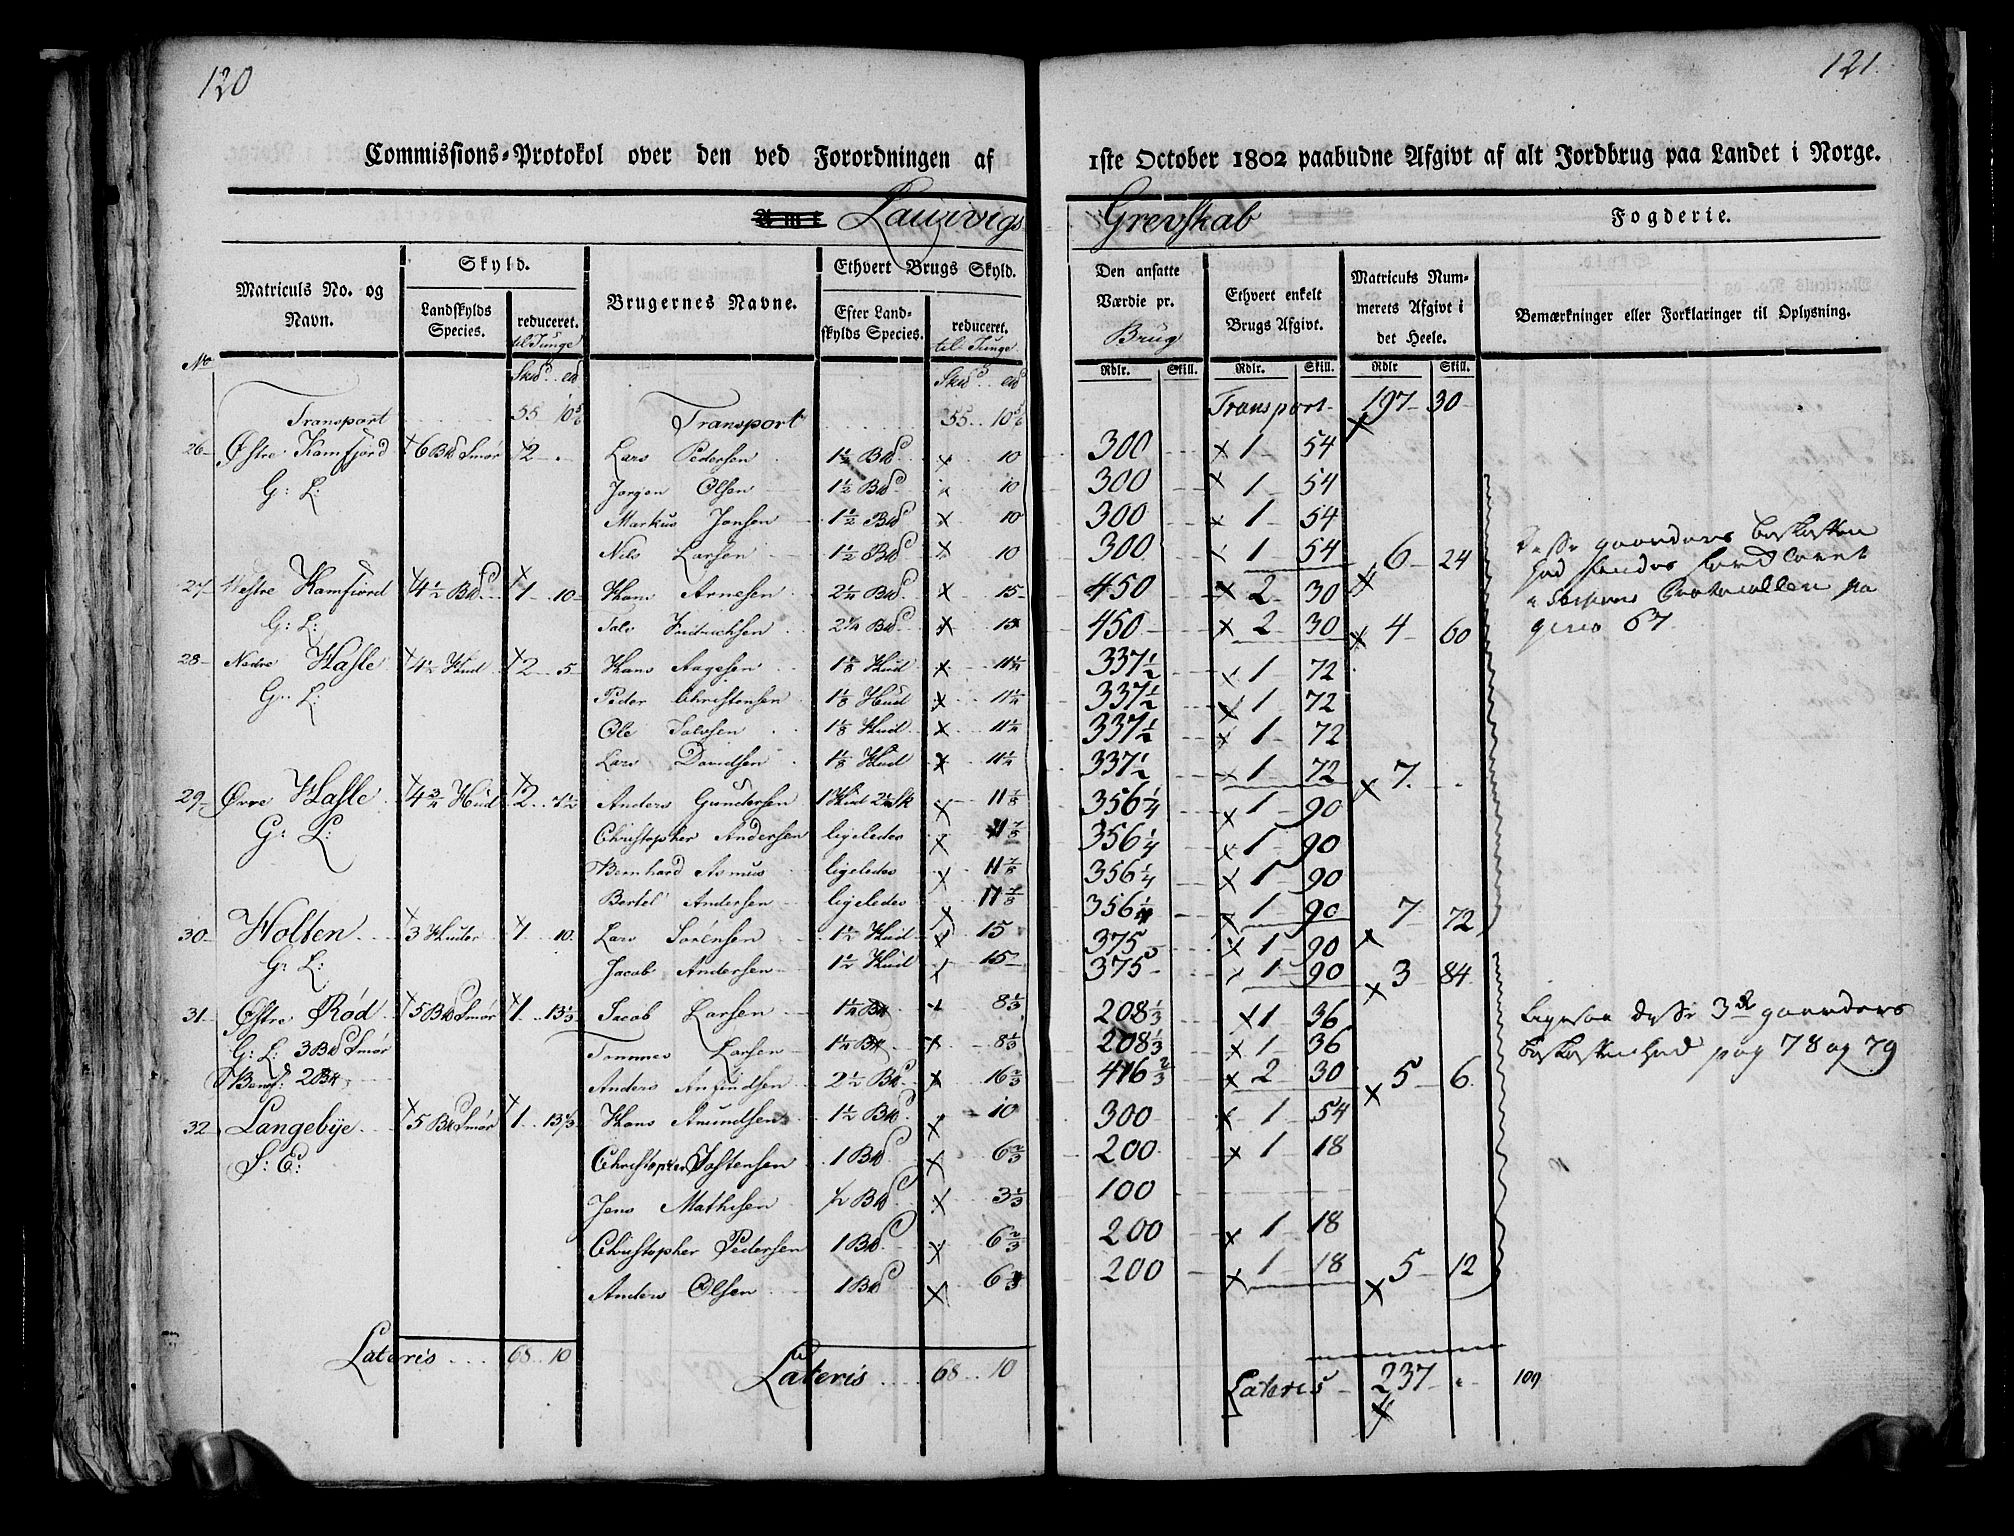 120
121.
Commissions-Protokol over den ved Forordningen af 1ste October 1802 paabudne Afgivt af alt Jordbrug paa Landet i Norge.
Amt Laurvigs Grevskab Fogderie.
Matriculs No. og Navn.
Skyld.
Landskylds Species.
reduceret. til Tunge
Brugernes Navne.
Ethvert Brugs Skyld.
Efter Landskylds Species.
reduceret. til Tunge
Den ansatte Værdie pr. Brug
Ethvert enkelt Brugs Afgivt.
Matriculs Nummerets Afgivt i det Heele.
Bemærkninger eller Forklaringer til Oplysning.
No Rdlr. Skill. Rdlr. Skill. Rdlr Skill.
Transport 55 10 5/6 Transport 55 10 5/6 Transport 197 30
26 Østre Kamfjord 6 Bd Smør 2 Lars Pedersen 1 1/2 Bd 10 300 1 54
G: L: Jørgen Olsen 1 1/2 Bd 10 300 1 54
Markus Jensen 1 1/2 Bd 10 300 1 54
Nils Larsen 1 1/2 Bd 10 300 1 54 6 24
27 Westre Kamfiord 4 1/2 Bd 1 10 Hans Arnesen 2 1/4 Bd 15 450 2 30
G: L: Fridrichsen 2 1/4 Bd 15 450 2 30 4 60
28 Nedre Hasle 4 1/2 Hud 2 5 Hans Aagesen 1 1/8 Hud 11 1/4 337 1/2 1 72
G: L: Peder Christensen 1 1/8 Hud 11 1/4 337 1/2 1 72
Ole 1 1/8 Hud 11 1/4 337 1/2 1 72
Lars Davidsen 1 1/8 Hud 11 1/4 337 1/2 1 72 7
29 Øvre Hasle 4 3/4 Hud 2 7 1/2 Anders Gundersen 1 Hud 11 7/8 356 1/4 1 90
G: L: Christopher Andersen ligeledes 11 7/8 356 1/4 1 90
Bernhard Asmus ligeledes 11 7/8 356 1/4 1 90
Bertel Andersen ligeledes 11 7/8 356 1/4 1 90 7 72
30 Holten 3 Huder 1 10 Lars Sørensen 1 1/2 Hud 15 375 1 90
G: L: Jacob Andersen 1 1/2 Hud 15 375 1 90 3 84
31 Østre Rød 5 Bd Smør 1 13 1/3 Jacob Larsen 1 1/4 Bd 8 1/3 208 1/3 1 36
G: L: 3 Bd Smør Tommes Larsen 1 1/4 Bd 8 1/3 208 1/3 1 36
Benef: 2 Bd Anders Amundsen 2 1/2 Bd 16 2/3 416 2/3 2 30 5 6
32 Langebÿe 5 Bd Smør 1 13 1/3 Hans Amundsen 1 1/2 Bd 10 300 1 54
S: E: Christopher Jostensen 1 Bd 6 2/3 200 1 18
Jens Mathisen 1/2 Bd 3 1/3 100
Christopher Pedersen 1 Bd 6 2/3 200 1 18
Anders Olsen 1 Bd 6 2/3 200 1 18 5 12
Disse gaarders Beskaffen
hed
Protocollen pa
gina 67
Ligesaa disse 3de gaarders
Beskaffenhed pag 78 og 79
Lateris 68 10 Lateris 68 10 Lateris 237 109